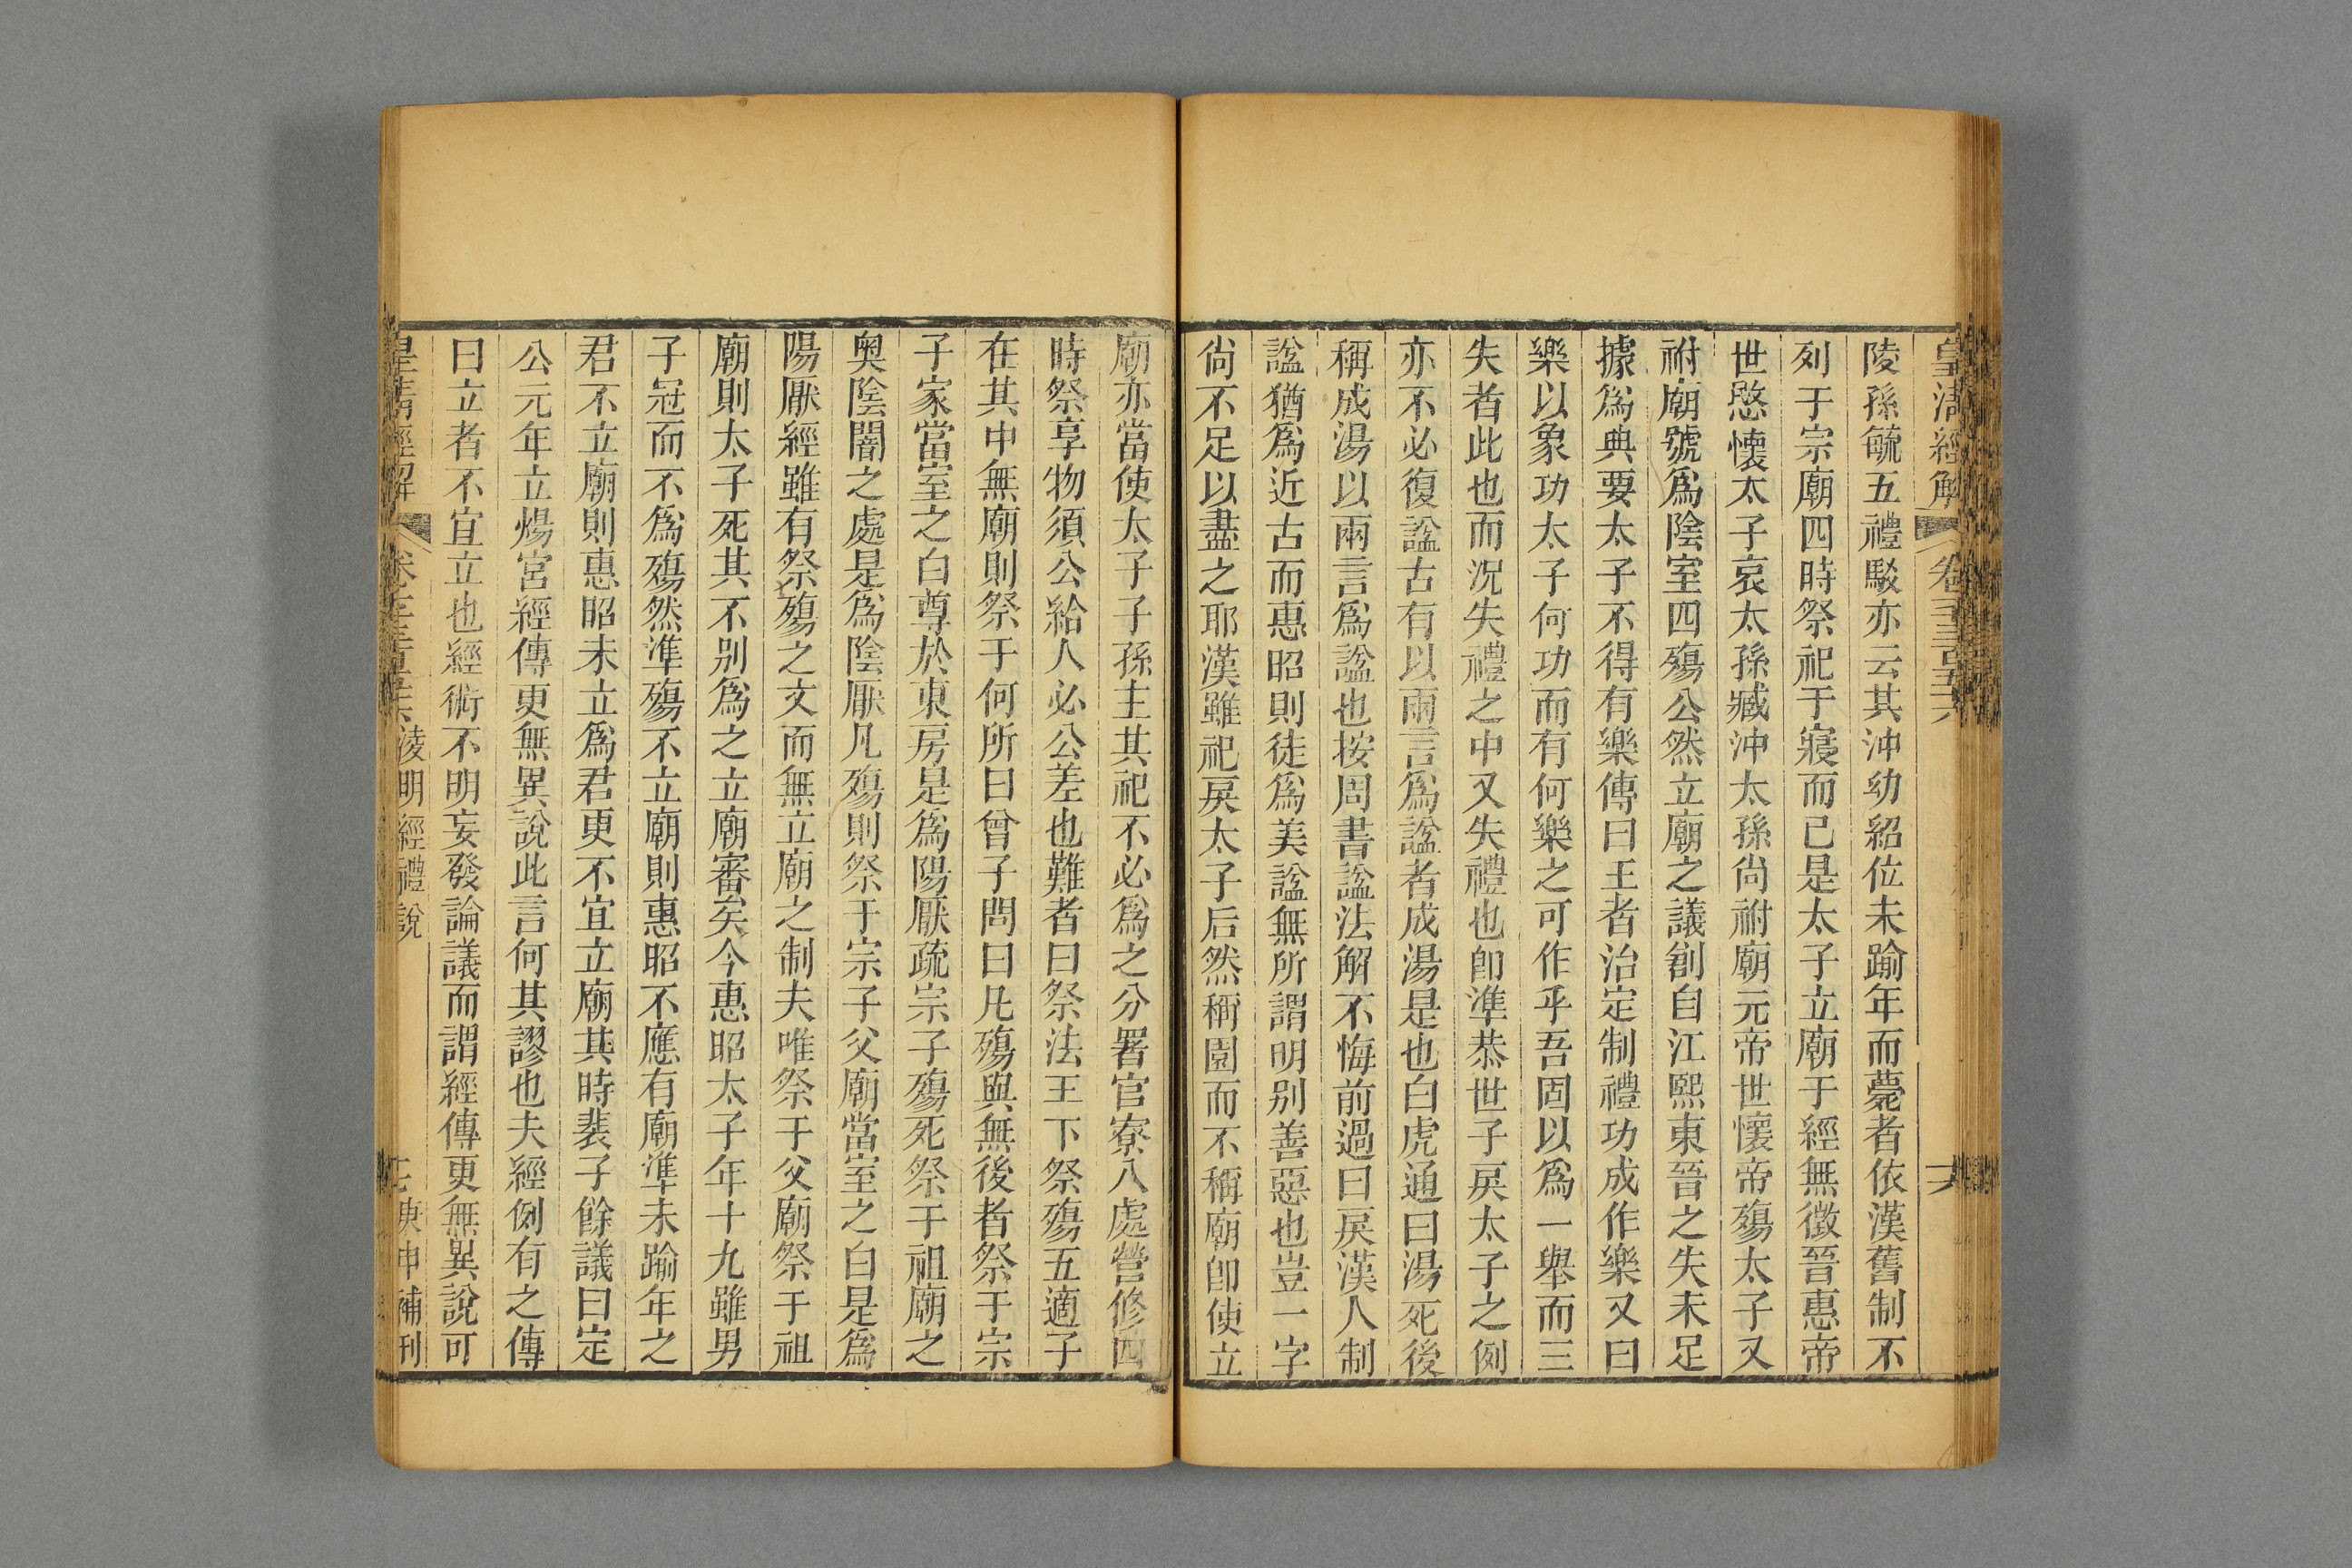 皇淸經解 卷千三百五十六 十六
陵孫毓五禮駁亦云其沖幼紹位未踰年而薨者依漢舊制不
列于宗廟四時祭祀于寢而已是太子立廟于經無徵晉惠帝
世愍懷太子哀太孫臧沖太孫尙祔廟元帝世懷帝殤太子又
祔廟號爲陰室四殤公然立廟之議創自江熙東晉之失未足
據爲典要太子不得有樂傳曰王者治定制禮功成作樂又曰
樂以象功太子何功而有何樂之可作乎吾固以爲一舉而三
失者此也而況失禮之中又失禮也卽準恭世子戾太子之例
亦不必復諡古有以兩言爲諡者成湯是也白虎通曰湯死後
稱成湯以兩言爲諡也按周書諡法解不悔前過曰戾漢人制
諡猶爲近古而惠昭則徒爲美諡無所謂明別善惡也豈一字
尙不足以盡之耶漢雖祀戾太子后然稱園而不稱廟卽使立
廟亦當使太子子孫主其祀不必爲之分署官寮八處營修四
時祭享物須公給人必公差也難者曰祭法王下祭殤五適子
在其中無廟則祭于何所曰曾子問曰凡殤與無後者祭于宗
子家當室之白尊於東房是爲陽厭疏宗子殤死祭于祖廟之
奧陰闇之處是爲陰厭凡殤則祭于宗子父廟當室之白是爲
陽厭經雖有祭殤之文而無立廟之制夫唯祭于父廟祭于祖
廟則太子死其不別爲之立廟審矣今惠昭太子年十九雖男
子冠而不爲殤然準殤不立廟則惠昭不應有廟準未踰年之
君不立廟則惠昭未立爲君更不宜立廟其時裴子餘議曰定
公元年立煬宮經傳更無異說此言何其謬也夫經例有之傳
曰立者不宜立也經術不明妄發論議而謂經傳更無異說可
皇淸經解 淩明經禮說 庚申補刊